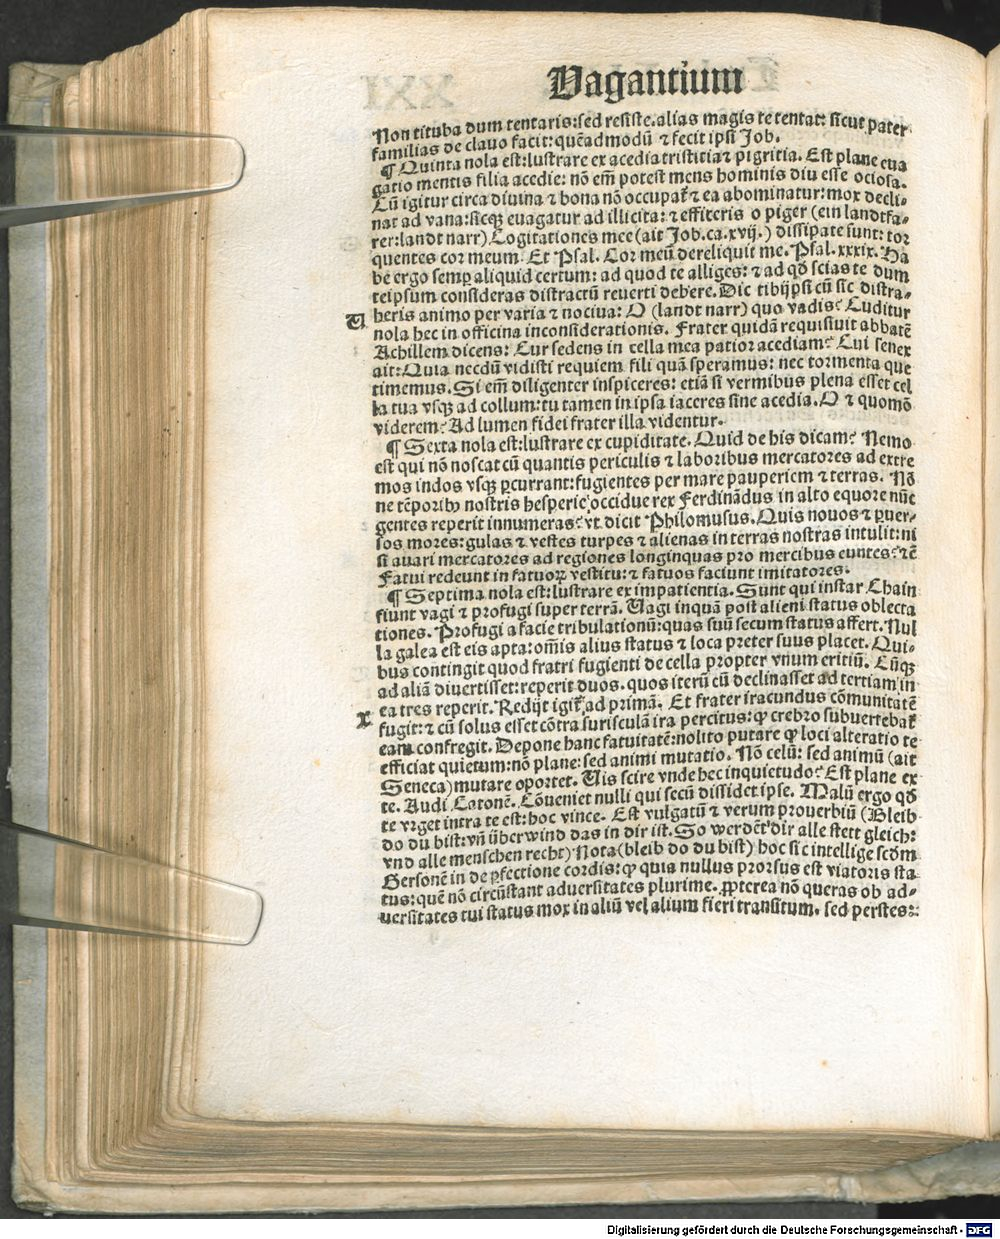 Vagantium
Non tituba dum tentaris: sed resiste. alias magis te tentat: sicut pater
familias de clauo facit: quēadmodū ⁊ fecit ipsi Job.
¶ Quinta nola est: lustrare ex acedia tristitia ⁊ pigritia. Est plane eua
gatio mentis filia acedie: nō em̄ potest mens hominis diu esse ociosa.
Cū igitur circa diuina ⁊ bona nō occupat᷑ ⁊ ea abominatur: mox decli⸗
nat ad vana: sicqꝫ euagatur ad illicita: ⁊ efficeris o piger (ein landtfa⸗
rer: landt narr) Cogitationes mee (ait Job. ca. xvij.) dissipate sunt: tor
quentes cor meum. Et Psal. Cor meū dereliquit me. Psal. xxxix. Ha
be ergo semꝑ aliquid certum: ad quod te alliges: ⁊ ad qd̄ scias te dum
teipsum consideras distractū reuerti debere. Dic tibijpsi cū sic distra⸗
V
heris animo per varia ⁊ nociua: O (landt narr) quo vadis? Luditur
nola hec in officina inconsiderationis. Frater quidā requisiuit abbatē
Achillem dicens: Cur sedens in cella mea patior acediam? Cui senex
ait: Quia necdū vidisti requiem fili quā speramus: nec tormenta que
timemus. Si em̄ diligenter inspiceres: etiā si vermibus plena esset cel
la tua vsqꝫ ad collum: tu tamen in ipsa iaceres sine acedia. O ⁊ quomō
viderem? Ad lumen fidei frater illa videntur.
¶ Sexta nola est: lustrare ex cupiditate. Quid de his dicam? Nemo
est qui nō noscat cū quantis periculis ⁊ laboribus mercatores ad extre
mos indos vsqꝫ ꝑcurrant: fugientes per mare pauperiem ⁊ terras. Nō
ne tēporibꝰ nostris hesperie occidue rex Ferdinādus in alto equore nūc
gentes reperit innumeras? vt dicit Philomusus. Quis nouos ⁊ ꝑuer⸗
sos mores: gulas ⁊ vestes turpes ⁊ alienas in terras nostras intulit: ni
si auari mercatores ad regiones longinquas pro mercibus euntes? ⁊c̄
Fatui redeunt in fatuoꝝ vestitu: ⁊ fatuos faciunt imitatores.
¶ Septima nola est: lustrare ex impatientia. Sunt qui instar Chain
fiunt vagi ⁊ profugi super terrā. Vagi inquā post alieni status oblecta
tiones. Profugi a facie tribulationū: quas suū secum status affert. Nul
la galea est eis apta: om̄is alius status ⁊ loca preter suus placet. Qui⸗
bus contingit quod fratri fugienti de cella propter vnum critiū. Cūqꝫ
ad aliā diuertisset: reperit duos. quos iterū cū declinasset ad tertiam in
ea tres reperit. Redijt igit᷑ ad primā. Et frater iracundus cōmunitatē
X
fugit: ⁊ cū solus esset cōtra suriscula ira percitus: ꝙ crebro subuertebat᷑
eam confregit. Depone hanc fatuitatē: nolito putare ꝙ loci alteratio te
efficiat quietum: nō plane: sed animi mutatio. Nō celū: sed animū (ait
Seneca) mutare oportet. Vis scire vnde hec inquietudo? Est plane ex
te. Audi Catonē. Cōueniet nulli qui secū dissidet ipse. Malū ergo qd̄
te vrget intra te est: hoc vince. Est vulgatū ⁊ verum prouerbiū (Bleib
do du bist: vn̄ überwind das in dir ist. So werdēt dir alle stett gleich:
vnd alle menschen recht) Nota (bleib do du bist) hoc sic intellige scd̄m
Gersonē in de ꝑfectione cordis: ꝙ quia nullus prorsus est viatoris sta
tus: quē nō circūstant aduersitates plurime. ꝓpterea nō queras ob ad⸗
uersitates tui status mox in aliū vel alium fieri transitum. sed perstes:
Digitalisierung gefördert durch die Deutsche Forschungsgemeinschaft - DFG